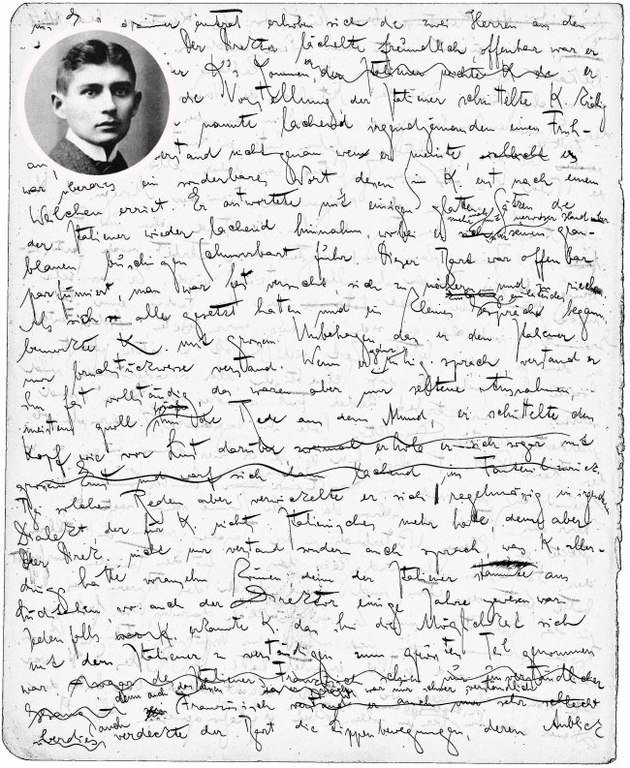 eintrat erhoben sich die zwei Herren aus den
Der Direktor lächelte freundlich offenbar war er
K's Kommen er
die Vorstellung der Italiener schüttelte K. kräftig
nannte lachend irgendjemanden einen Früh-
verstand nicht genau wen er meinte es
war überdies ein sonderbares Wort dessen Sinn K. erst nach einem
Weilchen erriet. Er antwortete mit einigen glatten Sätzen die
mit nervöser Hand über
der Italiener wieder lachend hinnahm, wobei er seinen grau-
blauen buschigen Schnurrbart fuhr. Dieser Bart war offenbar
parfümiert, man war fast versucht, sich zu nähern und zu riechen.
einleitendes
Als sich alle gesetzt hatten und ein kleines Gespräch begann
bemerkte K. mit grossem Unbehagen, das er den Italiener
ganz
nur bruchstückweise verstand. Wenn er ruhig sprach verstand er
ihn fast vollständig, das waren aber nur seltene Ausnahmen,
meistens quoll ihm die Rede aus dem Mund, er schüttelte den
Kopf wie vor Lust darüber erholte er sich sogar mit
und warf sich dann lachend im Fauteuil zurück.
Bei solchen Reden aber verwickelte er sich regelmässig in irgend
Dialekt, der für K. nichts Italienisches mehr hatte, den aber
der Direk. nicht nur verstand sondern auch sprach, was K. aller-
dings hätte voraussehn können, denn der Italiener stammte aus
Süditalien, wo auch der Direktor einige Jahre gewesen war.
Jedenfalls erkannte K. das ihm die Möglichkeit sich
mit dem Italiener zu verständigen zum grössten Teil genommen
war
denn auch dessen war nur schwer verständlich
Französisch
auch
überdies verdeckte der Bart die Lippenbewegungen, deren Anblick